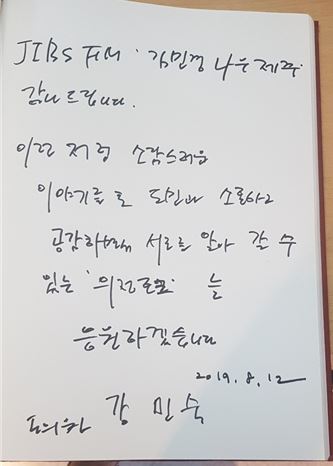 JIBS FM '김민경 나우제주'
감사드립니다.
이런 저런 소담스러운
이야기들로 도민과 소통하고
공감하며 서로를 알아 갈 수
있는 '의 늘
응원하겠습니다
2019. 8. 12
도의원 강 민 숙